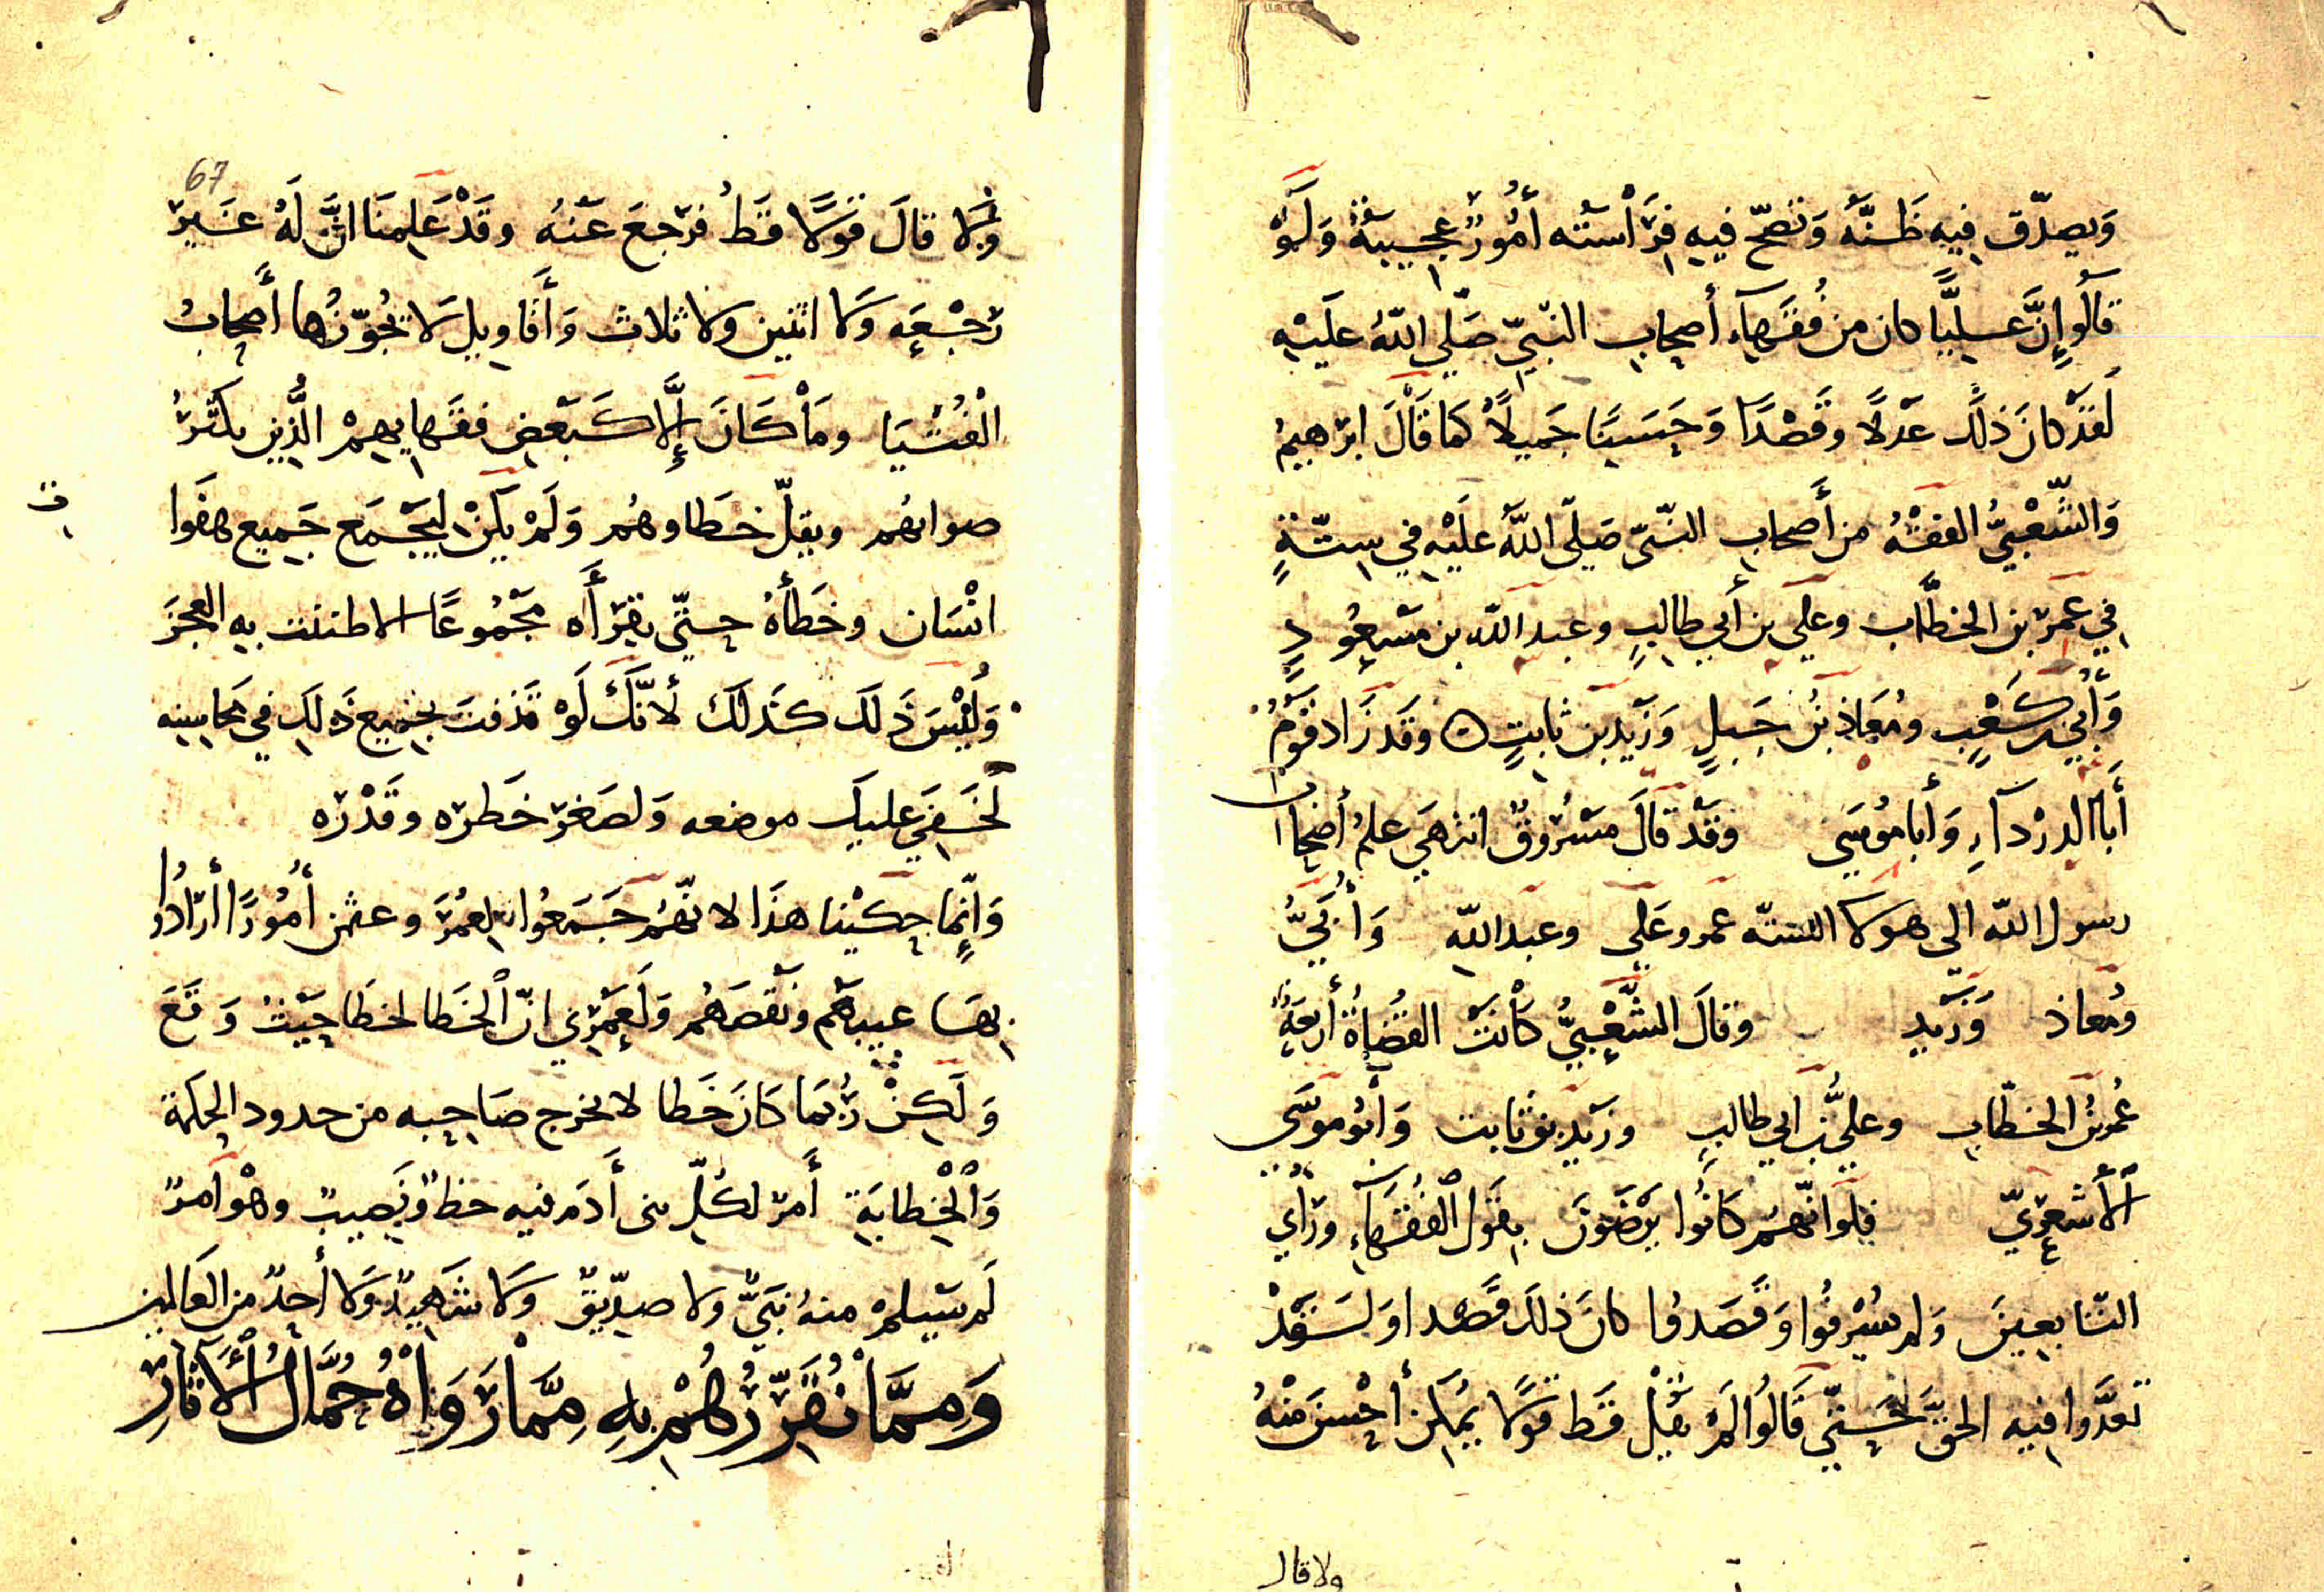 وَيصدّق فيه ظَنَّهُ وَتصحّ فيهِ فِرَاْسَتُه أمُورٌ عجيبةٌ وَلَوْ
قالُو إِنَّ عَلِيًّا كان من فُقَهاءِ أصحابِ النّبيّ صَلّى اللّهُ عليْهِ
لَقَدْ كانَ ذلك عَدْلًا وقَصْدًا وَحَسَنًا جَميلاً كما قَالَ ابرٰهيمُ
وَالشَّعْبِيُّ الفقْهُ من أَصحابِ النّبيّ صَلّى اللّهُ علَيْهِ في سِتّةٍ
في عمَرَ بن الخطّاب وعلي بن أبي طالبٍ وعبد اللّه بن مسْعُودٍ
وَأُبَيّ بن كَعْبٍ ومُعَاذِ بْن جَبلٍ وَزيْد بن ثابتٍ ه وقَد زَاد قوْمٌ
أبَا الدرْدَآءِ وَأبا مُوسَى وقَدْ قالَ مسْرُوقٌ انتهَى علمُ أصْحابِ
رسول اللّه الى هولا الستّه عمر وعَلي وعبد اللّه وَأُبَيٍّ
ومُعاذ وَزَيْدٍ وقالَ الشَّعْبِيُّ كانَتْ القُضاةُ أرْبعَةً
عُمرُ بْنُ الخطّابِ وعليُّ بْن ابي طالبٍ وزَيْد بنُ ثابت وَأبُو موسَى
الأشعريّ فلَو انّهُم كانُوا يَرْضَوْنَ بقول الفُقَهاءِ ورَأي
التّابعينَ وَلم يُسْرفُوا وَقَصَدُوا كانَ ذلكَ قَصْدا وَلَقَدْ
تعدَّوا فيه الحقَّ حَتّى قَالُوا لمْ يقُلْ قَط قولًا يُمكِن أحْسنَ منْهُ
ولا قال
67
وَلا قالَ قولًا قَطُ فرجعَ عَنهُ وقَدْ عَلِمنَا انَّ لَهُ غَيرَ
رَجْعَه وَلا اثنين ولا ثلاث وَأَقاويل لَا يُجَوّزُها أَصحابُ
الْفُتْيَا ومَا كَانَ إلّا كَبَعْضِ فقَهايهِمْ الَّذين يكثُرُ
صوابهُم ويقلّ خطَاوهُم وَلَمْ يَكنْ ليجْمَع جَميع هفَوا
ت
انْسَان وخَطَأهُ حتّى يقرَأه مجْمُوعًا الا طننت به العجزَ
وَلَيْسَ ذَلكَ كَذلكَ لأنّكَ لَوْ قَذفتَ بجميع ذَلكَ في محاسِنه
لَخَفِيَ عليك موضعه وَلصَغرَ خَطره وقَدْرُه
وَإنّما حكَيْنا هذَا لانّهُم جَمَعُوا لِعُمَرَ وعثمن أمُورًا أرَادُوا
بها عيبهَمُ ونَقصَهُم وَلَعمْرِي انّ الخَطا لخطَا حَيْثُ وَقَعَ
وَلَكِنْ رُبّمَا كانَ خَطا لا يخرج صَاحِبه من حدود الحكمة
وَالْخِطابَة أَمر لكُلّ بنى أَدَم فيه حظٌ وَنَصِيبٌ وهْوَ امرٌ
لَم يَسْلم منهُ نبَيٌّ ولا صدّيقٌ وَلا شَهيدٌ وَلا أحدٌ من العَالمين
وَمِمَّا نُقَرِّرُهُمْ بهِ مِمَّا رَوَاهُ حُمَّالُ الْآثارِ